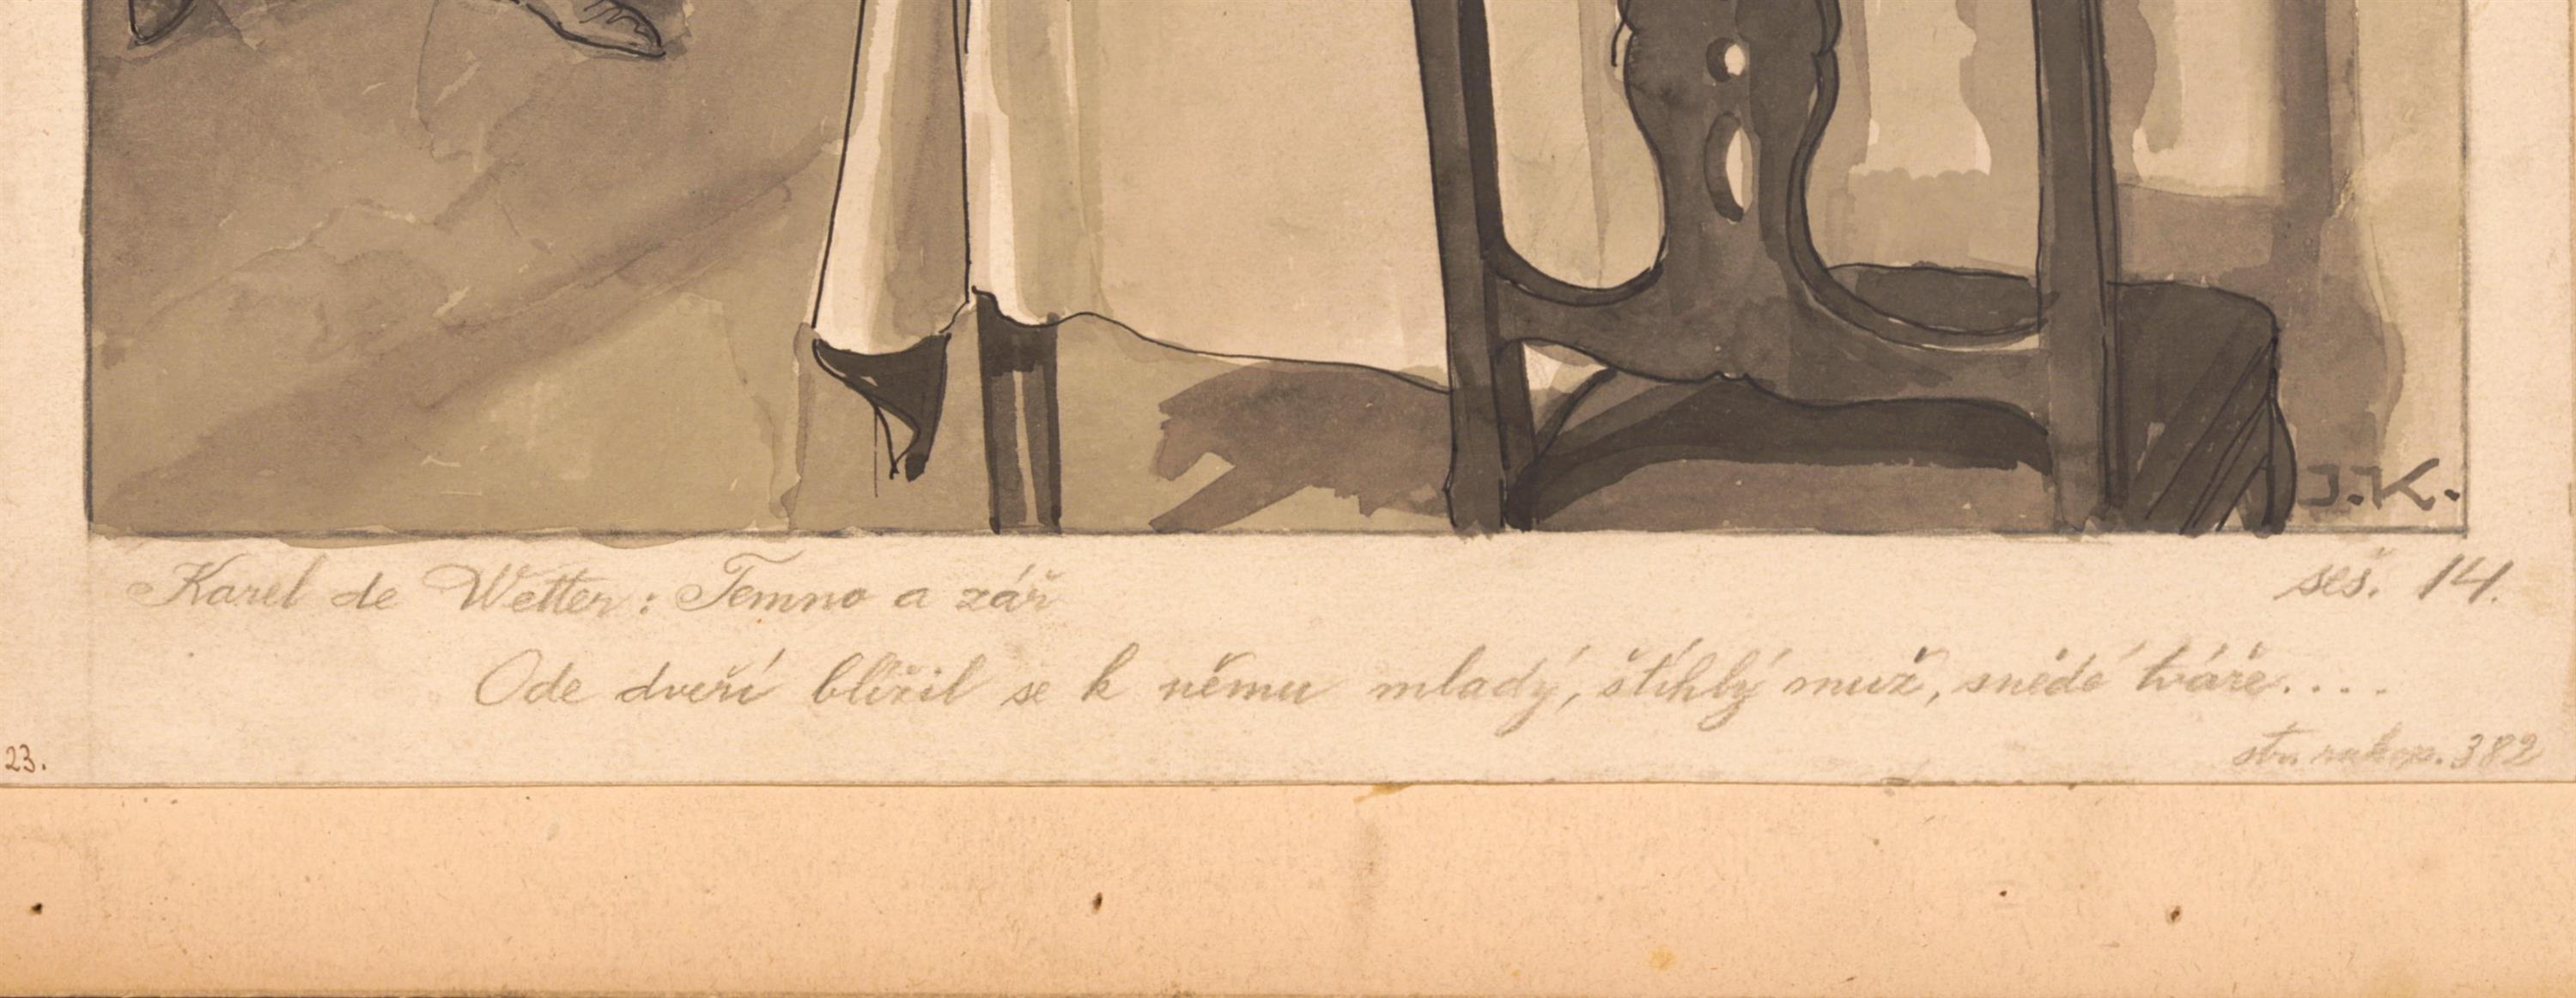 J.K.
Karel de Wetter: Temno a zář seš. 14.
Ode dveří blížil se k němu mladý, štíhlý muž, snědé tváře....
23. str. rukop. 382